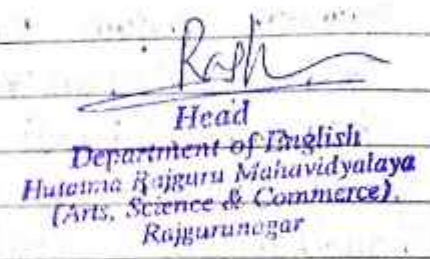 Head
Department of English
Hutatma Rajguru Mahavidyalaya
(Arts, Science & Commerce),
Rajgurunagar